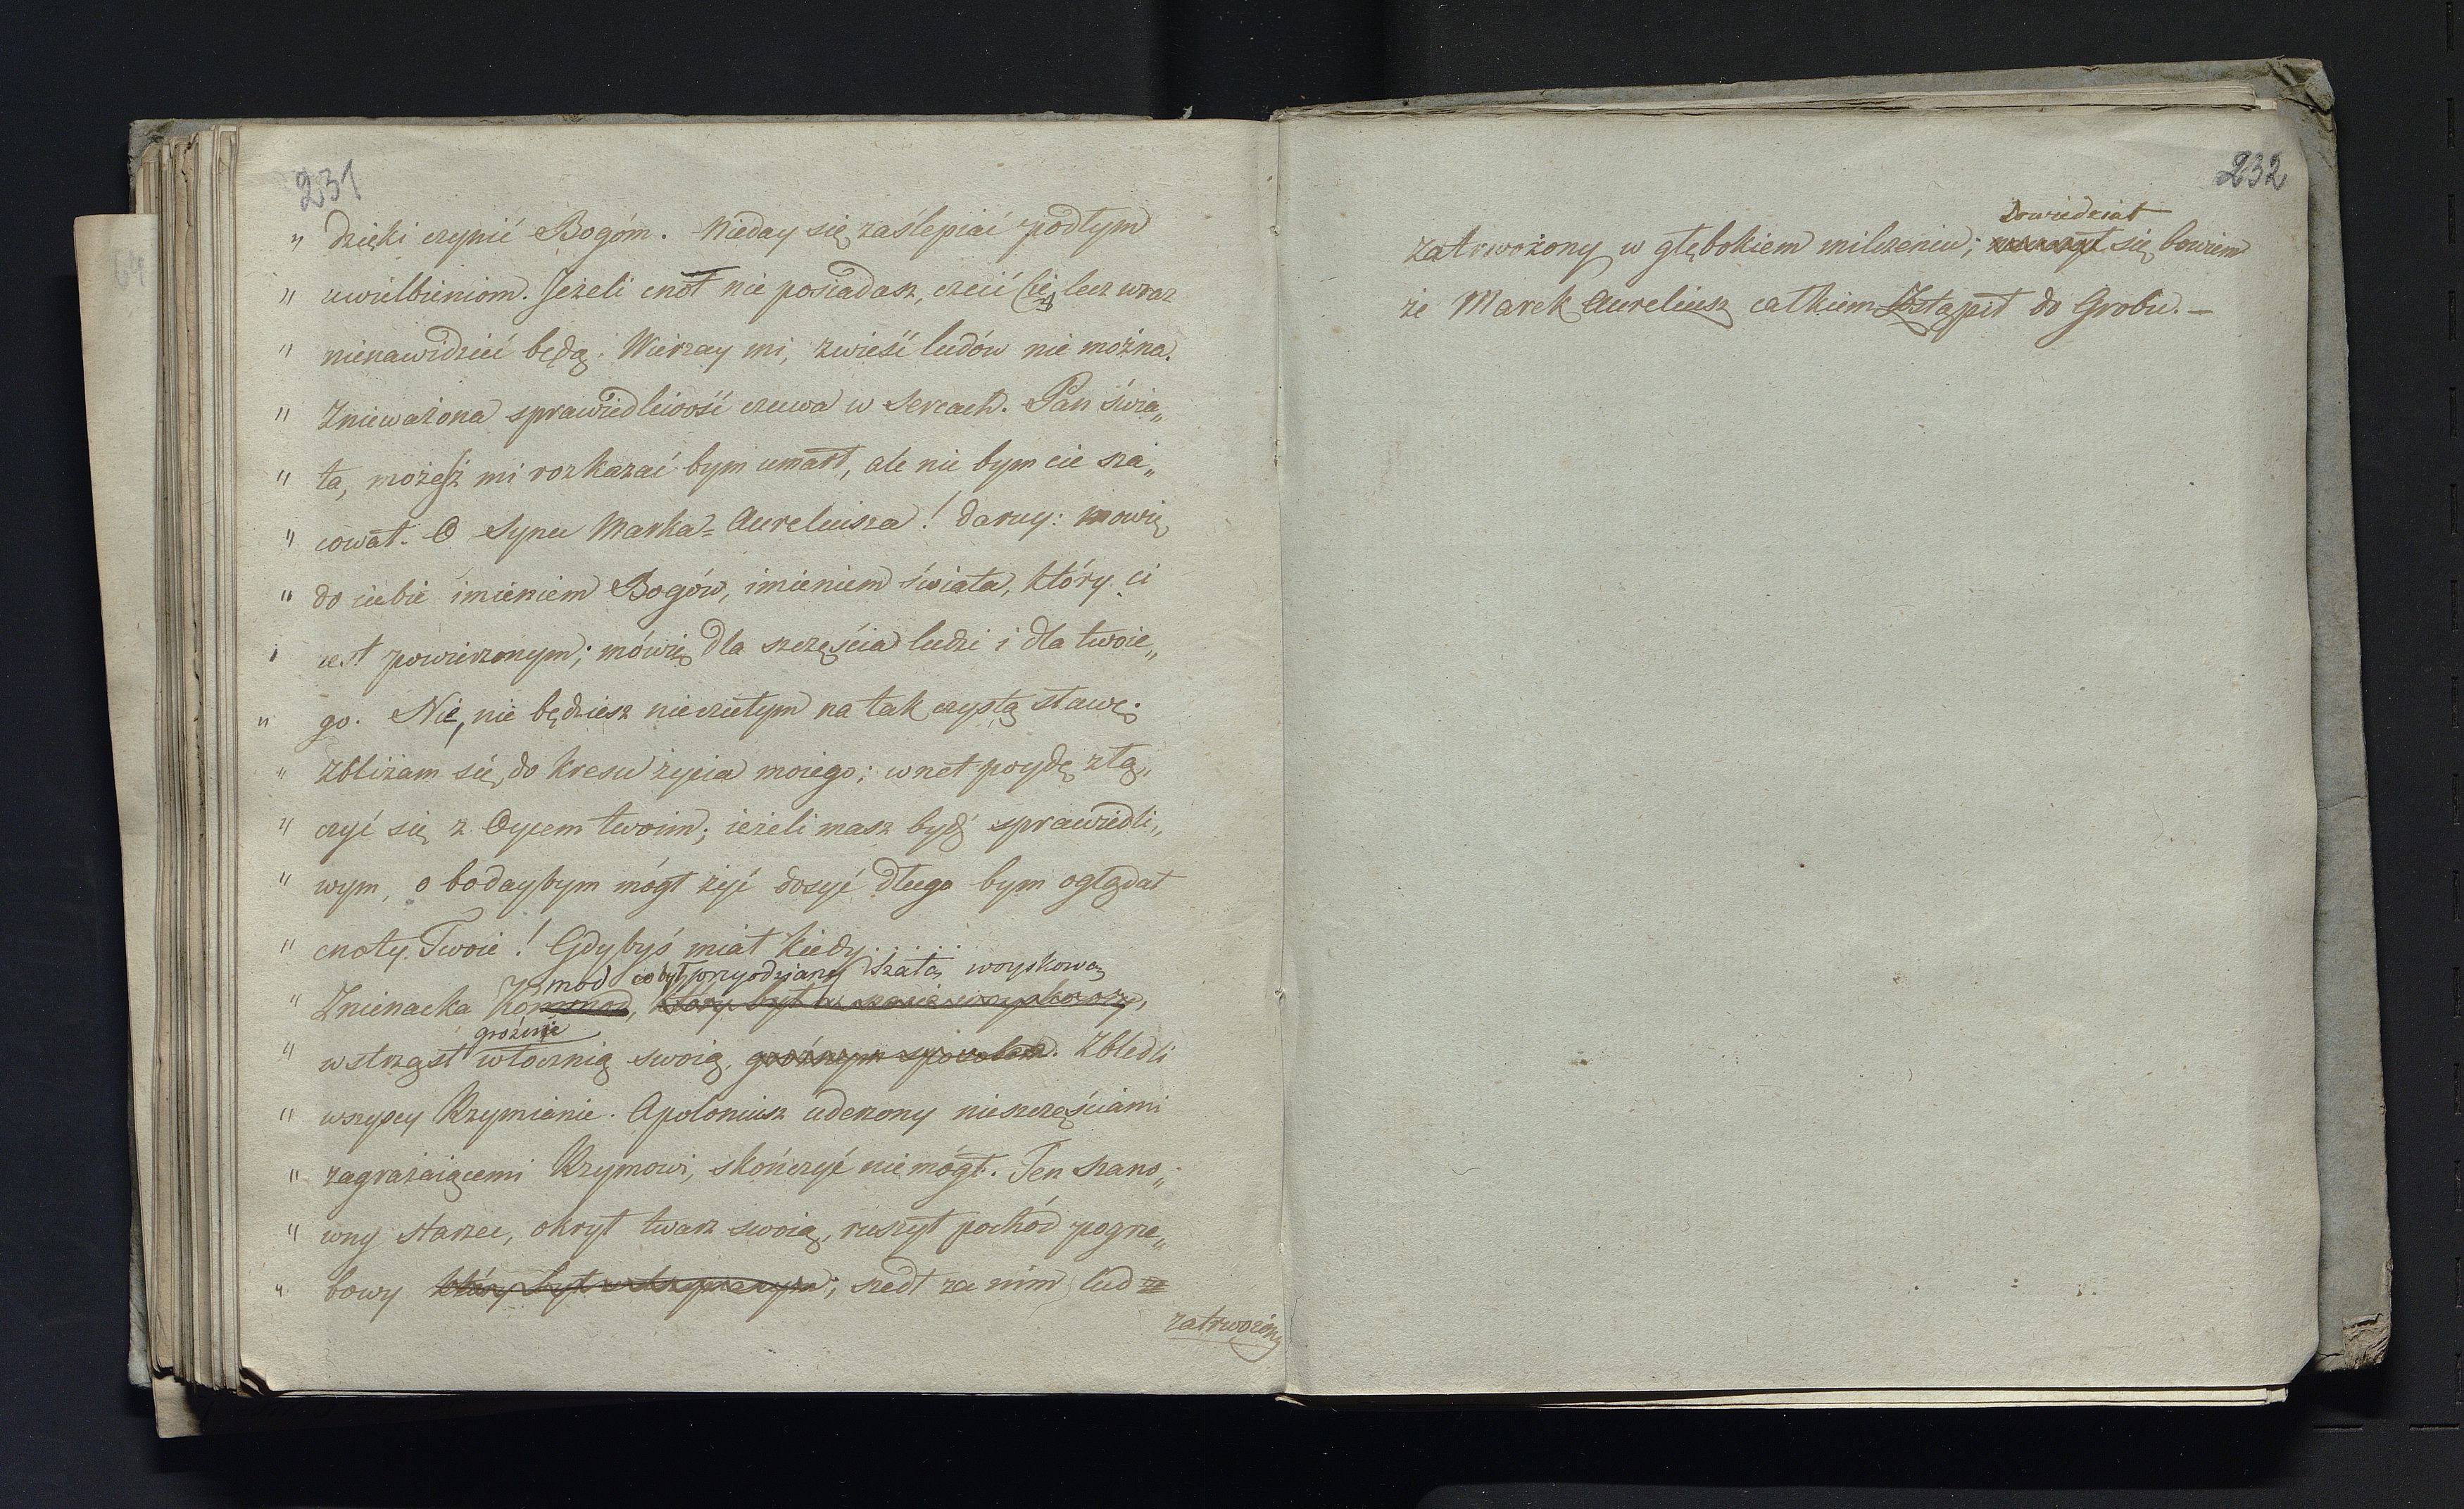 231
„ dzięki czynić Bogóm. Nieday się zaślepiać podłym
„ uwielbieniom. Jeżeli cnót nie posiadasz, czcić cię lecz wraz
„ nienawidzieć będą. Wierzay mi, zwieść ludów nie można.
„ Znieważona sprawiedliwość czuwa w sercach. Pan świa„
„ ta, możesz mi rozkazać bym umarł, ale nie bym cie sza„
„ cował. O Synu Marka-Aureliusza! daruy: mowię
„ do ciebie imieniem Bogów, imieniem świata, który ci
„ iest powierzonym; mówię dla szczęścia ludzi i dla twoie„
„ go. Nie, nie będziesz nieczułym na tak czystą sławę.
„ Zbliżam się do kresu życia moiego; wnet poydę złą„
„ czyć się z Oycem twoim; ieżeli masz bydź sprawiedli„
„ wym, o bodaybym mógł żyć dosyć długo bym oglądał
„ cnoty Twoie! Gdybyś miał kiedy......
mod co był przyodziany szatą woyskową
„ Znienacka Kommod, który był w szacie woyskowey,
groźnie
„ wstrząsł włocznią swoią, groźnym sposobem. Zbledli
„ wszyscy Rzymianie. Apoloniusz uderzony nieszczęściami
„ zagrażaiącemi Rzymowi, skończyć nie mógł. Ten szano„
„ wny starzec, okrył twarz swoią, ruszył pochód pogrze„
„ bowy który był wstrzymanym; szedł za nim lud
zatrwożony
232
Dowiedział
zatrwożony w głębokiem milczeniu; się bowiem
że Marek Aureliusz całkiem Zstąpił do Grobu. –